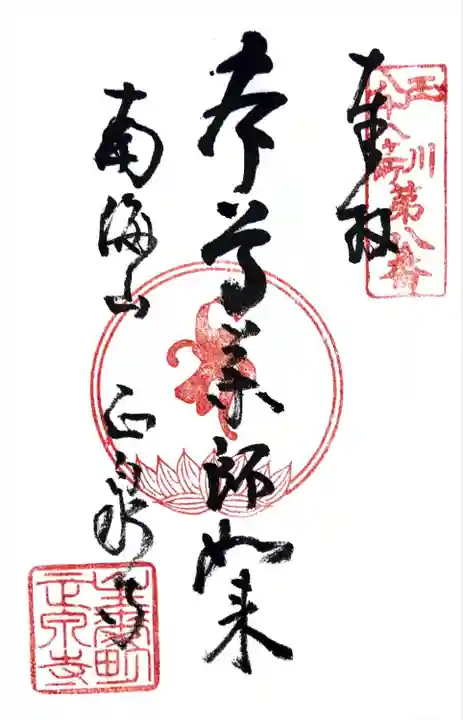 玉川八十八ヶ所第八番
奉拝
本尊薬師如来
南海山 正泉寺
生麦町
正泉寺